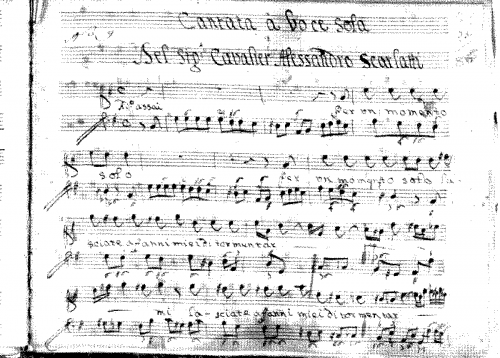 Cantata à Voce sola
Del Sigr Cavalier Alessandro Scarlatti
assai
Per un momento
solo Per un momento solo la-
sciate affanni miei di tormentar
mi la-sciate affanni miei di tormentar